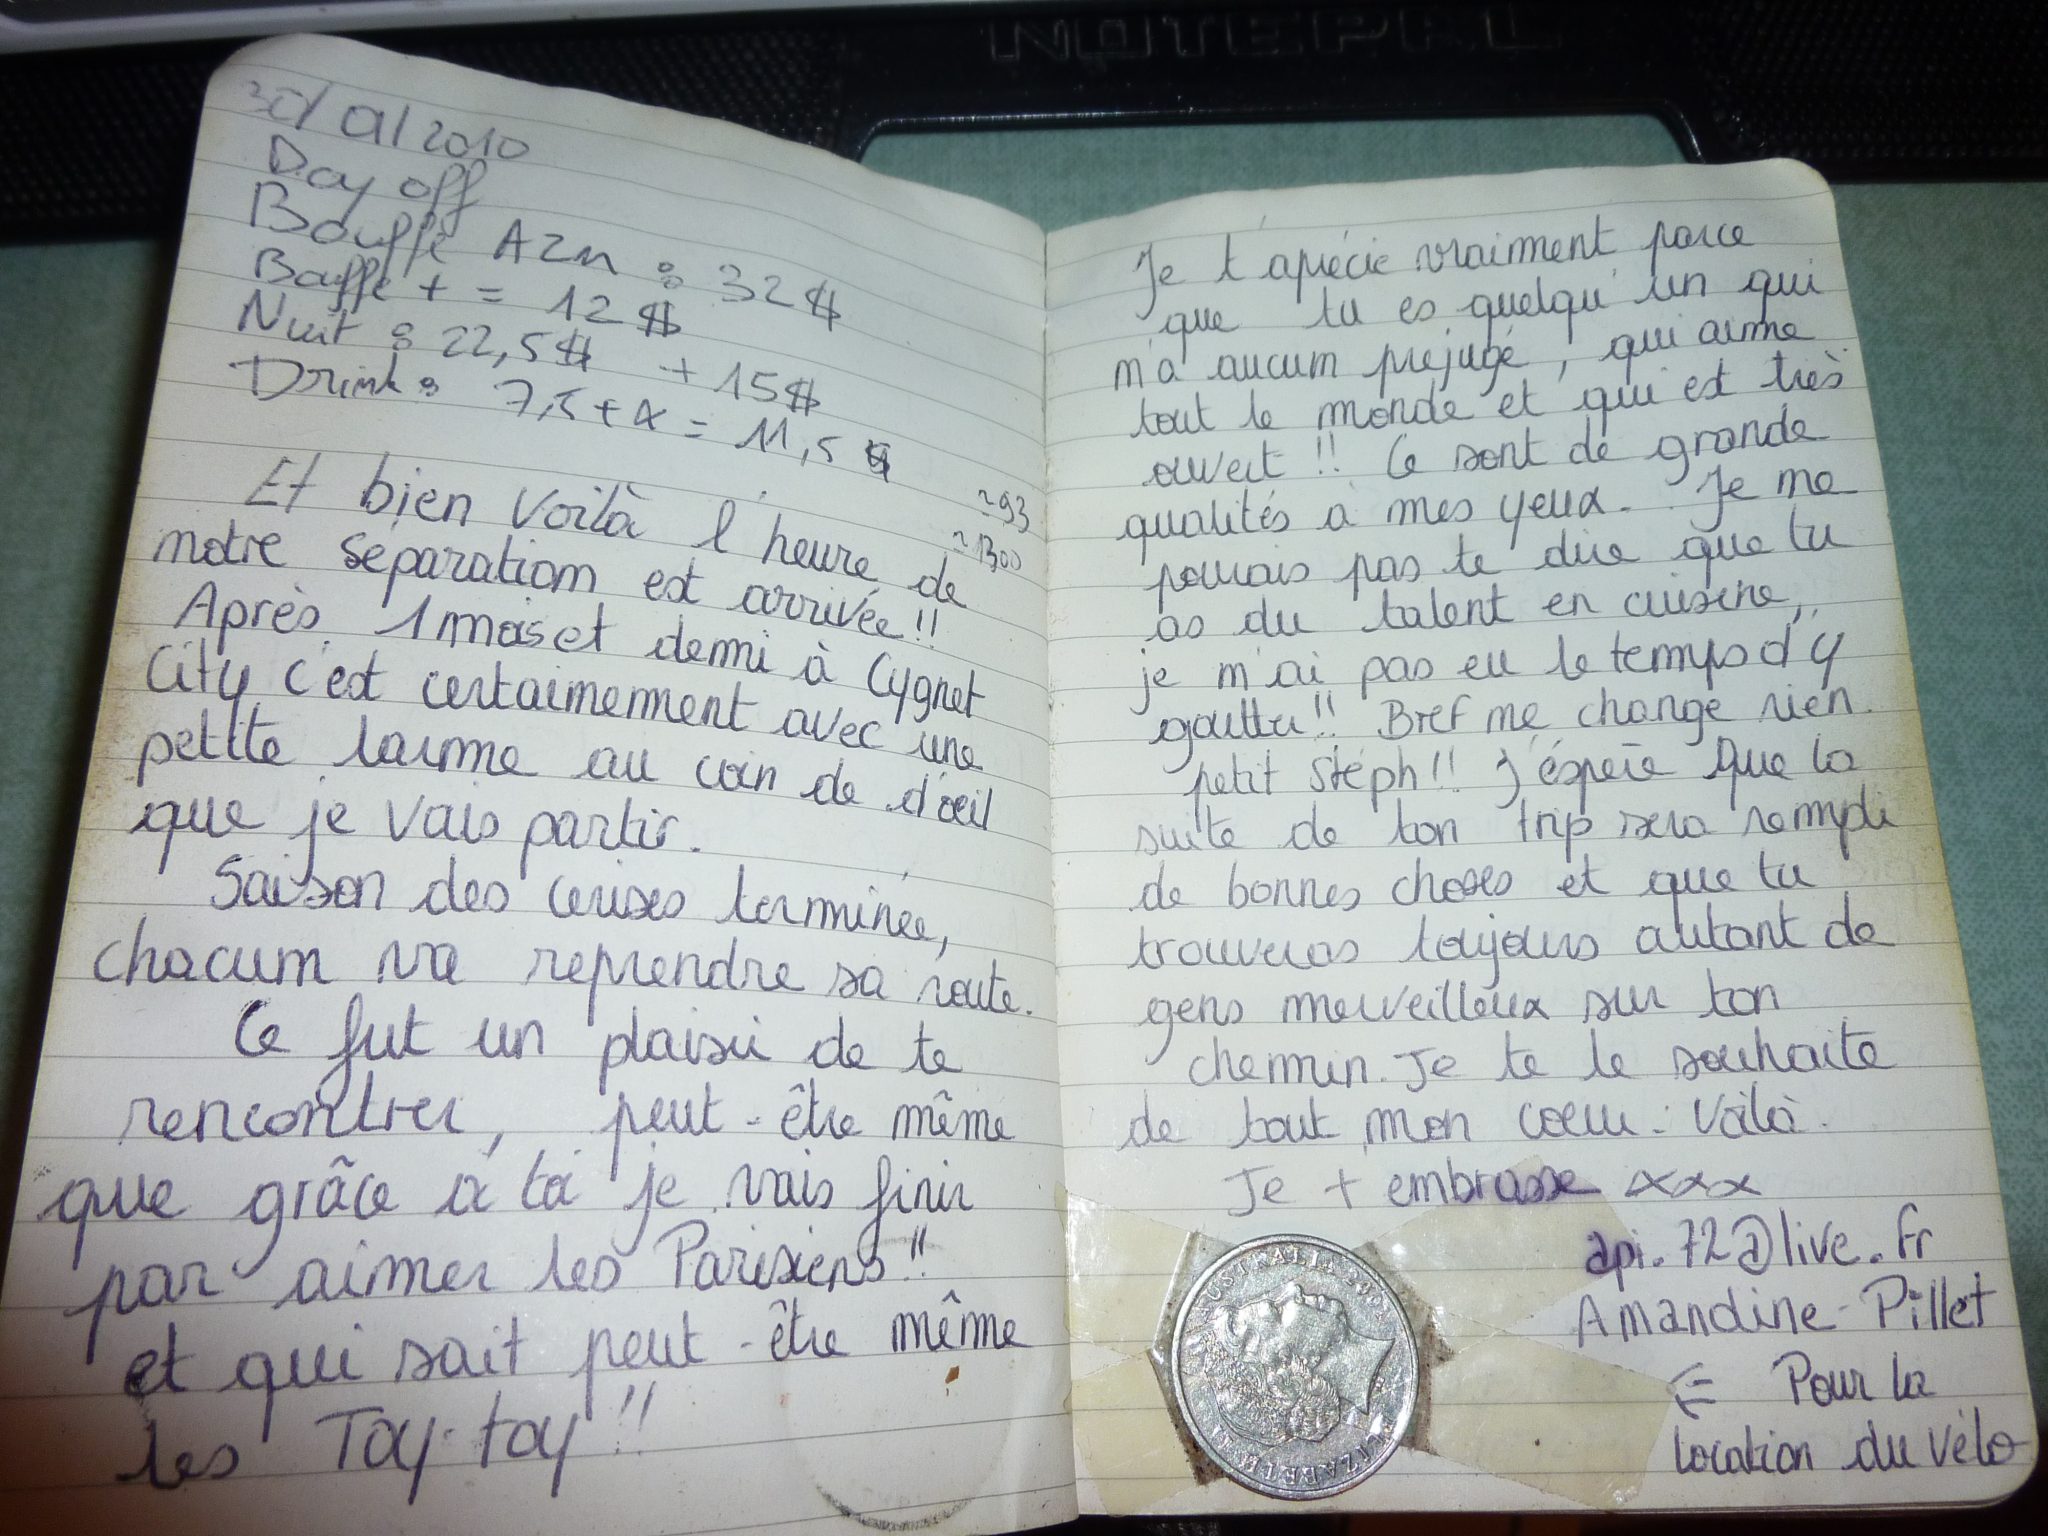 NOTEPAL
30/01/2010
Day off
Bouffe Azn : 32$
Bouffe + = 12$
Nuit : 22,5$ + 15$
Drink : 7,5+4 = 11,5$
~93
~1300
Et bien voilà l'heure de
notre séparation est arrivée!!
Après 1 mois et demi à Cygnet
City c'est certainement avec une
petite larme au coin de d'oeil
que je vais partir.
Saison des cerises terminée,
chacun va reprendre sa route.
Ce fut un plaisir de te
rencontrer, peut-être même
que grâce à toi je vais finir
par aimer les Parisiens!!
et qui sait peut-être même
les Toy-toy!!
Je t'apécie vraiment parce
que tu es quelqu'un qui
n'a aucun préjugé, qui aime
tout le monde et qui est très
ouvert!! Ce sont de grande
qualités à mes yeux. Je ne
pourrais pas te dire que tu
as du talent en cuisine,
je n'ai pas eu le temps d'y
goutter!! Bref ne change rien
petit Stéph!! J'éspère que la
suite de ton trip sera rempli
de bonnes choses et que tu
trouveras toujours autant de
gens merveilleux sur ton
chemin. Je te le souhaite
de tout mon coeur. Voilà.
Je t embrasse xxx
api.72@live.fr
Amandine-Pillet
⇐ Pour la
location du vélo
AUSTRALIA
ELIZABETH II